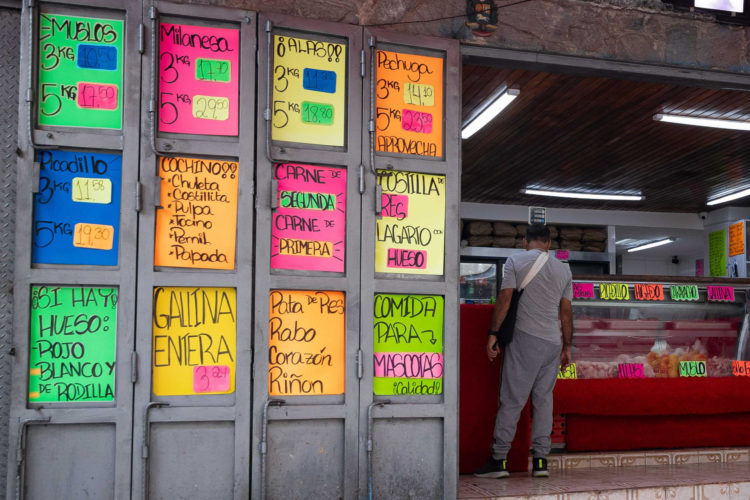 MUSLOS
3KG 10,59
5KG 17.50
Milanesa
3KG 17.70
5KG 29.50
¡¡ALAS!!
3KG
5KG 18.79
Pechuga
3KG 14.10
5KG 23.50
APROVECHA
Picadillo
3KG 11,58
5KG 19,30
COCHINO!!
·Chuleta
·Costillita
·Pulpa
·Tocino
·Pernil
·Papada
CARNE DE
SEGUNDA
CARNE DE
PRIMERA
COSTILLA DE
RES
LAGARTO CON
HUESO
¡SI HAY!
HUESO:
-ROJO
BLANCO Y
DE RODILLA
GALLINA
ENTERA
Pata DE Res
Rabo
Corazón
Riñon
COMIDA
PARA
MASCOTAS
¡Calidad!
MUSLO